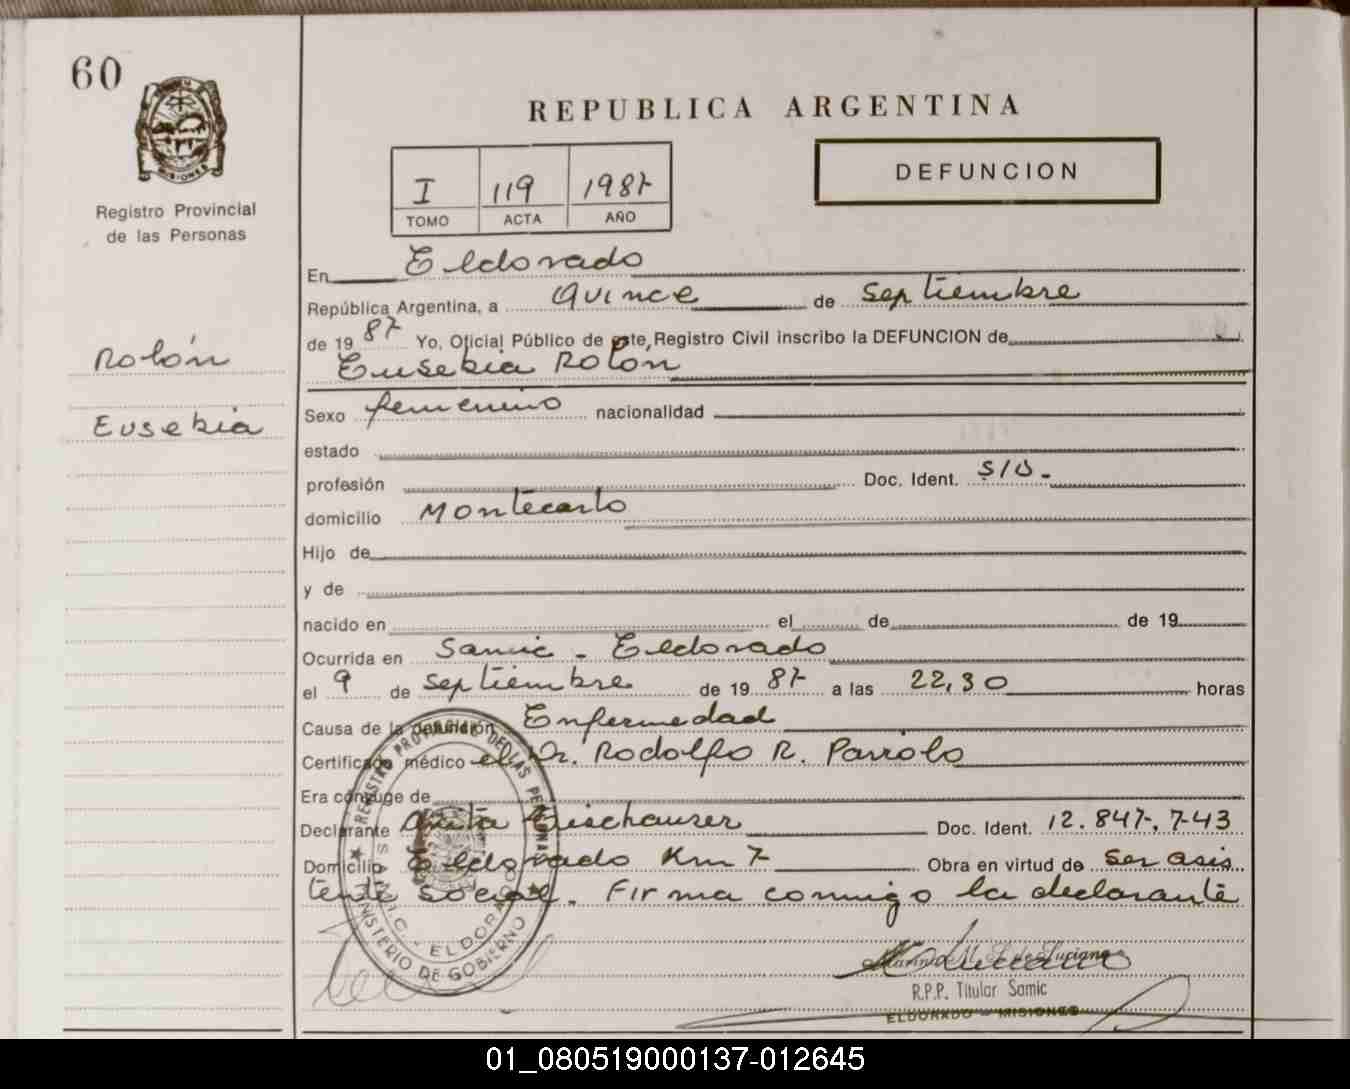 60
MISIONES
Registro Provincial
de las Personas
Rolón
Eusebia
REPUBLICA ARGENTINA
DEFUNCION
I 119 1987
TOMO ACTA AÑO
En Eldorado
República Argentina, a Quince de Septiembre
de 19 87 Yo, Oficial Público de este, Registro Civil inscribo la DEFUNCION de
Eusebia Rolón
Sexo femenino nacionalidad
estado
profesión Doc. Ident. S/D.-
domicilio Montecarlo
Hijo de
y de
nacido en el de de 19
Ocurrida en Samic - Eldorado
el 9 de septiembre de 19 87 a las 22,30 horas
Causa de la defunción Enfermedad
Certificado médico el Dr. Rodolfo R. Parrolo
Era cónyuge de
Declarante Anita Doc. Ident. 12.847.743
Domicilio Eldorado Km 7 Obra en virtud de ser asis
tente social. Firma conmigo la declarante
REGISTRO PROVINCIAL DE LAS PERSONAS
S.A.M.I.C. - ELDORADO
MINISTERIO DE GOBIERNO
de Luciano
R.P.P. Titular Samic
ELDORADO - MISIONES
01_080519000137-012645